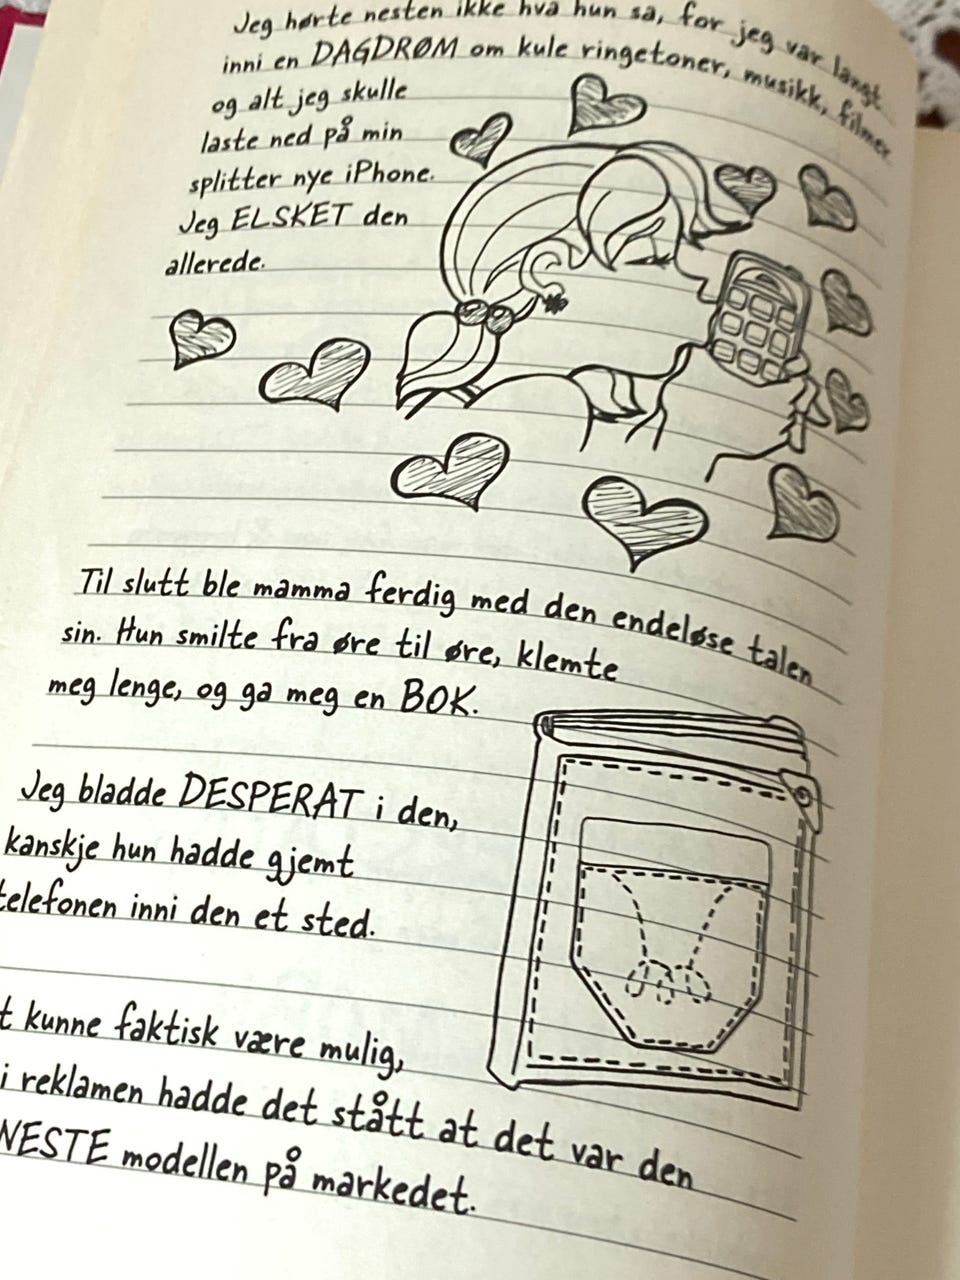 Jeg hørte nesten ikke hva hun sa, for jeg var langt
inni en DAGDRØM om kule ringetoner, musikk, filmer
og alt jeg skulle
laste ned på min
splitter nye iPhone.
Jeg ELSKET den
allerede.
Til slutt ble mamma ferdig med den endeløse talen
sin. Hun smilte fra øre til øre, klemte
meg lenge, og ga meg en BOK.
Jeg bladde DESPERAT i den,
kanskje hun hadde gjemt
telefonen inni den et sted.
t kunne faktisk være mulig,
i reklamen hadde det stått at det var den
NESTE modellen på markedet.